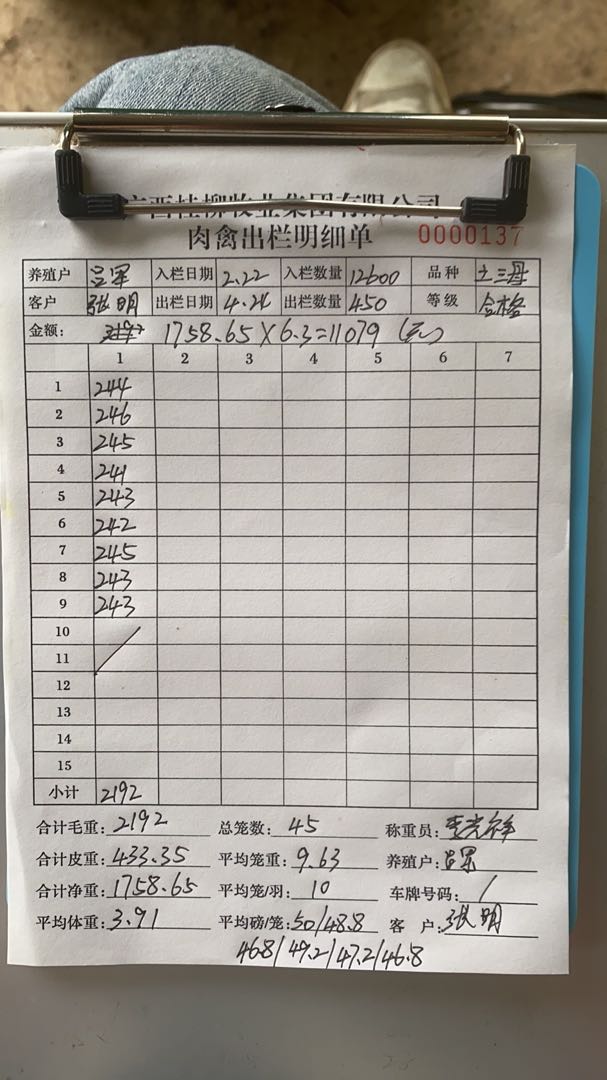 广西桂柳牧业集团有限公司
肉禽出栏明细单 0000137
养殖户 吕军 入栏日期 2.22 入栏数量 12600 品种 土三母
客户 张明 出栏日期 4.24 出栏数量 450 等级 合格
金额: 1758.65×6.3=11079 (元)
1 2 3 4 5 6 7
1 244
2 246
3 245
4 241
5 243
6 242
7 245
8 243
9 243
10
11
12
13
14
15
小计 2192
合计毛重: 2192 总笼数: 45 称重员:
合计皮重: 433.35 平均笼重: 9.63 养殖户: 吕军
合计净重: 1758.65 平均笼/羽: 10 车牌号码: /
平均体重: 3.91 平均磅/笼: 50/48.8 客户: 张明
46.8/49.2/47.2/46.8